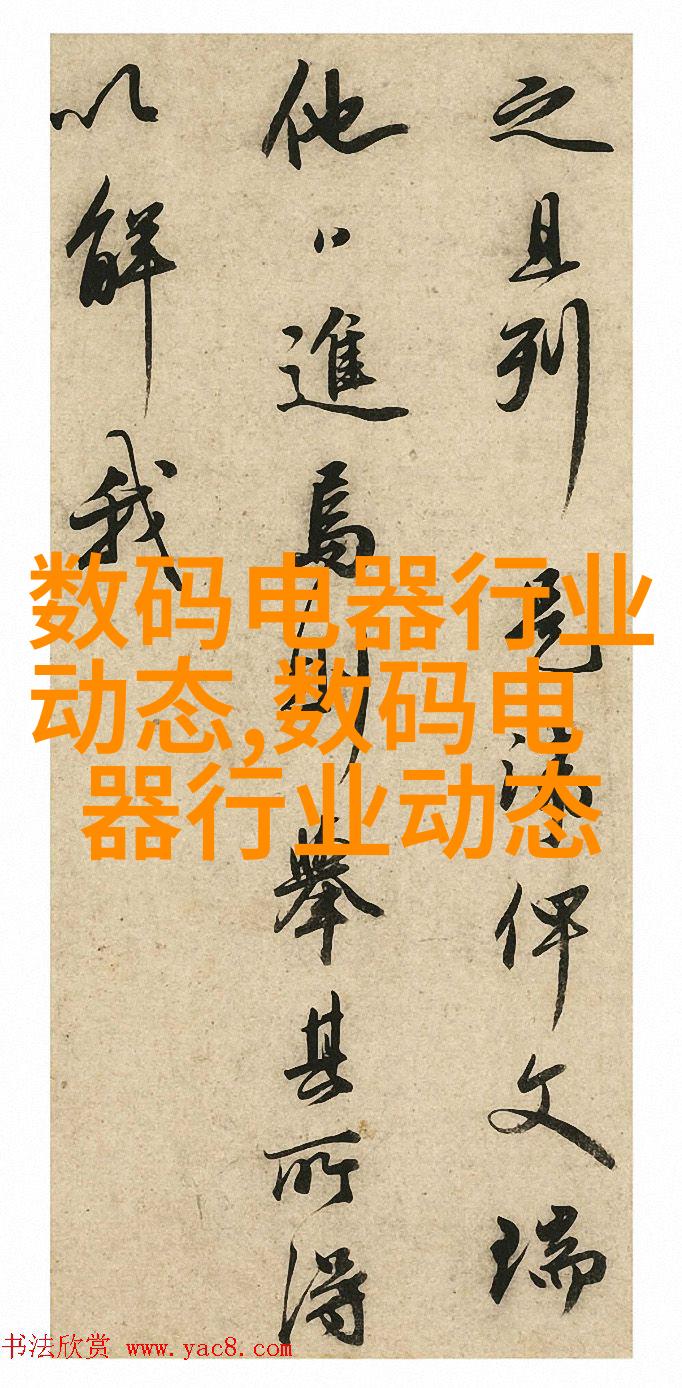 之且列俾文瑞
他進焉則舉其所得
以解我
数码电器行业
动态,数码电
器行业动态
书法欣赏 www.yac8.com